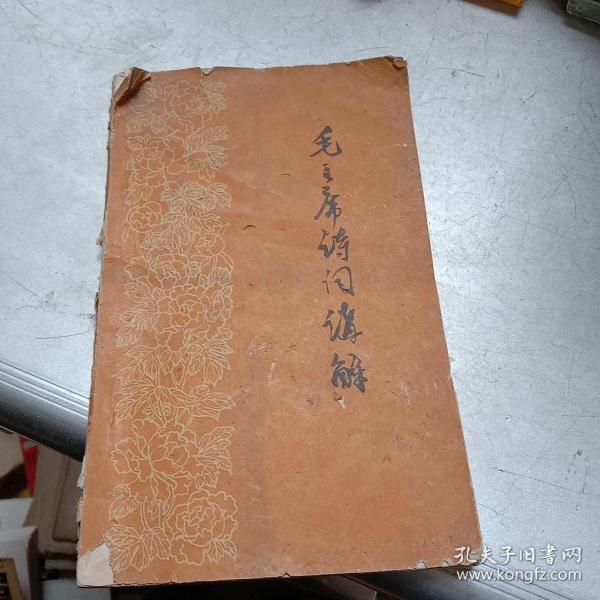 毛主席诗词讲解
孔夫子旧書网
www.kongfz.com